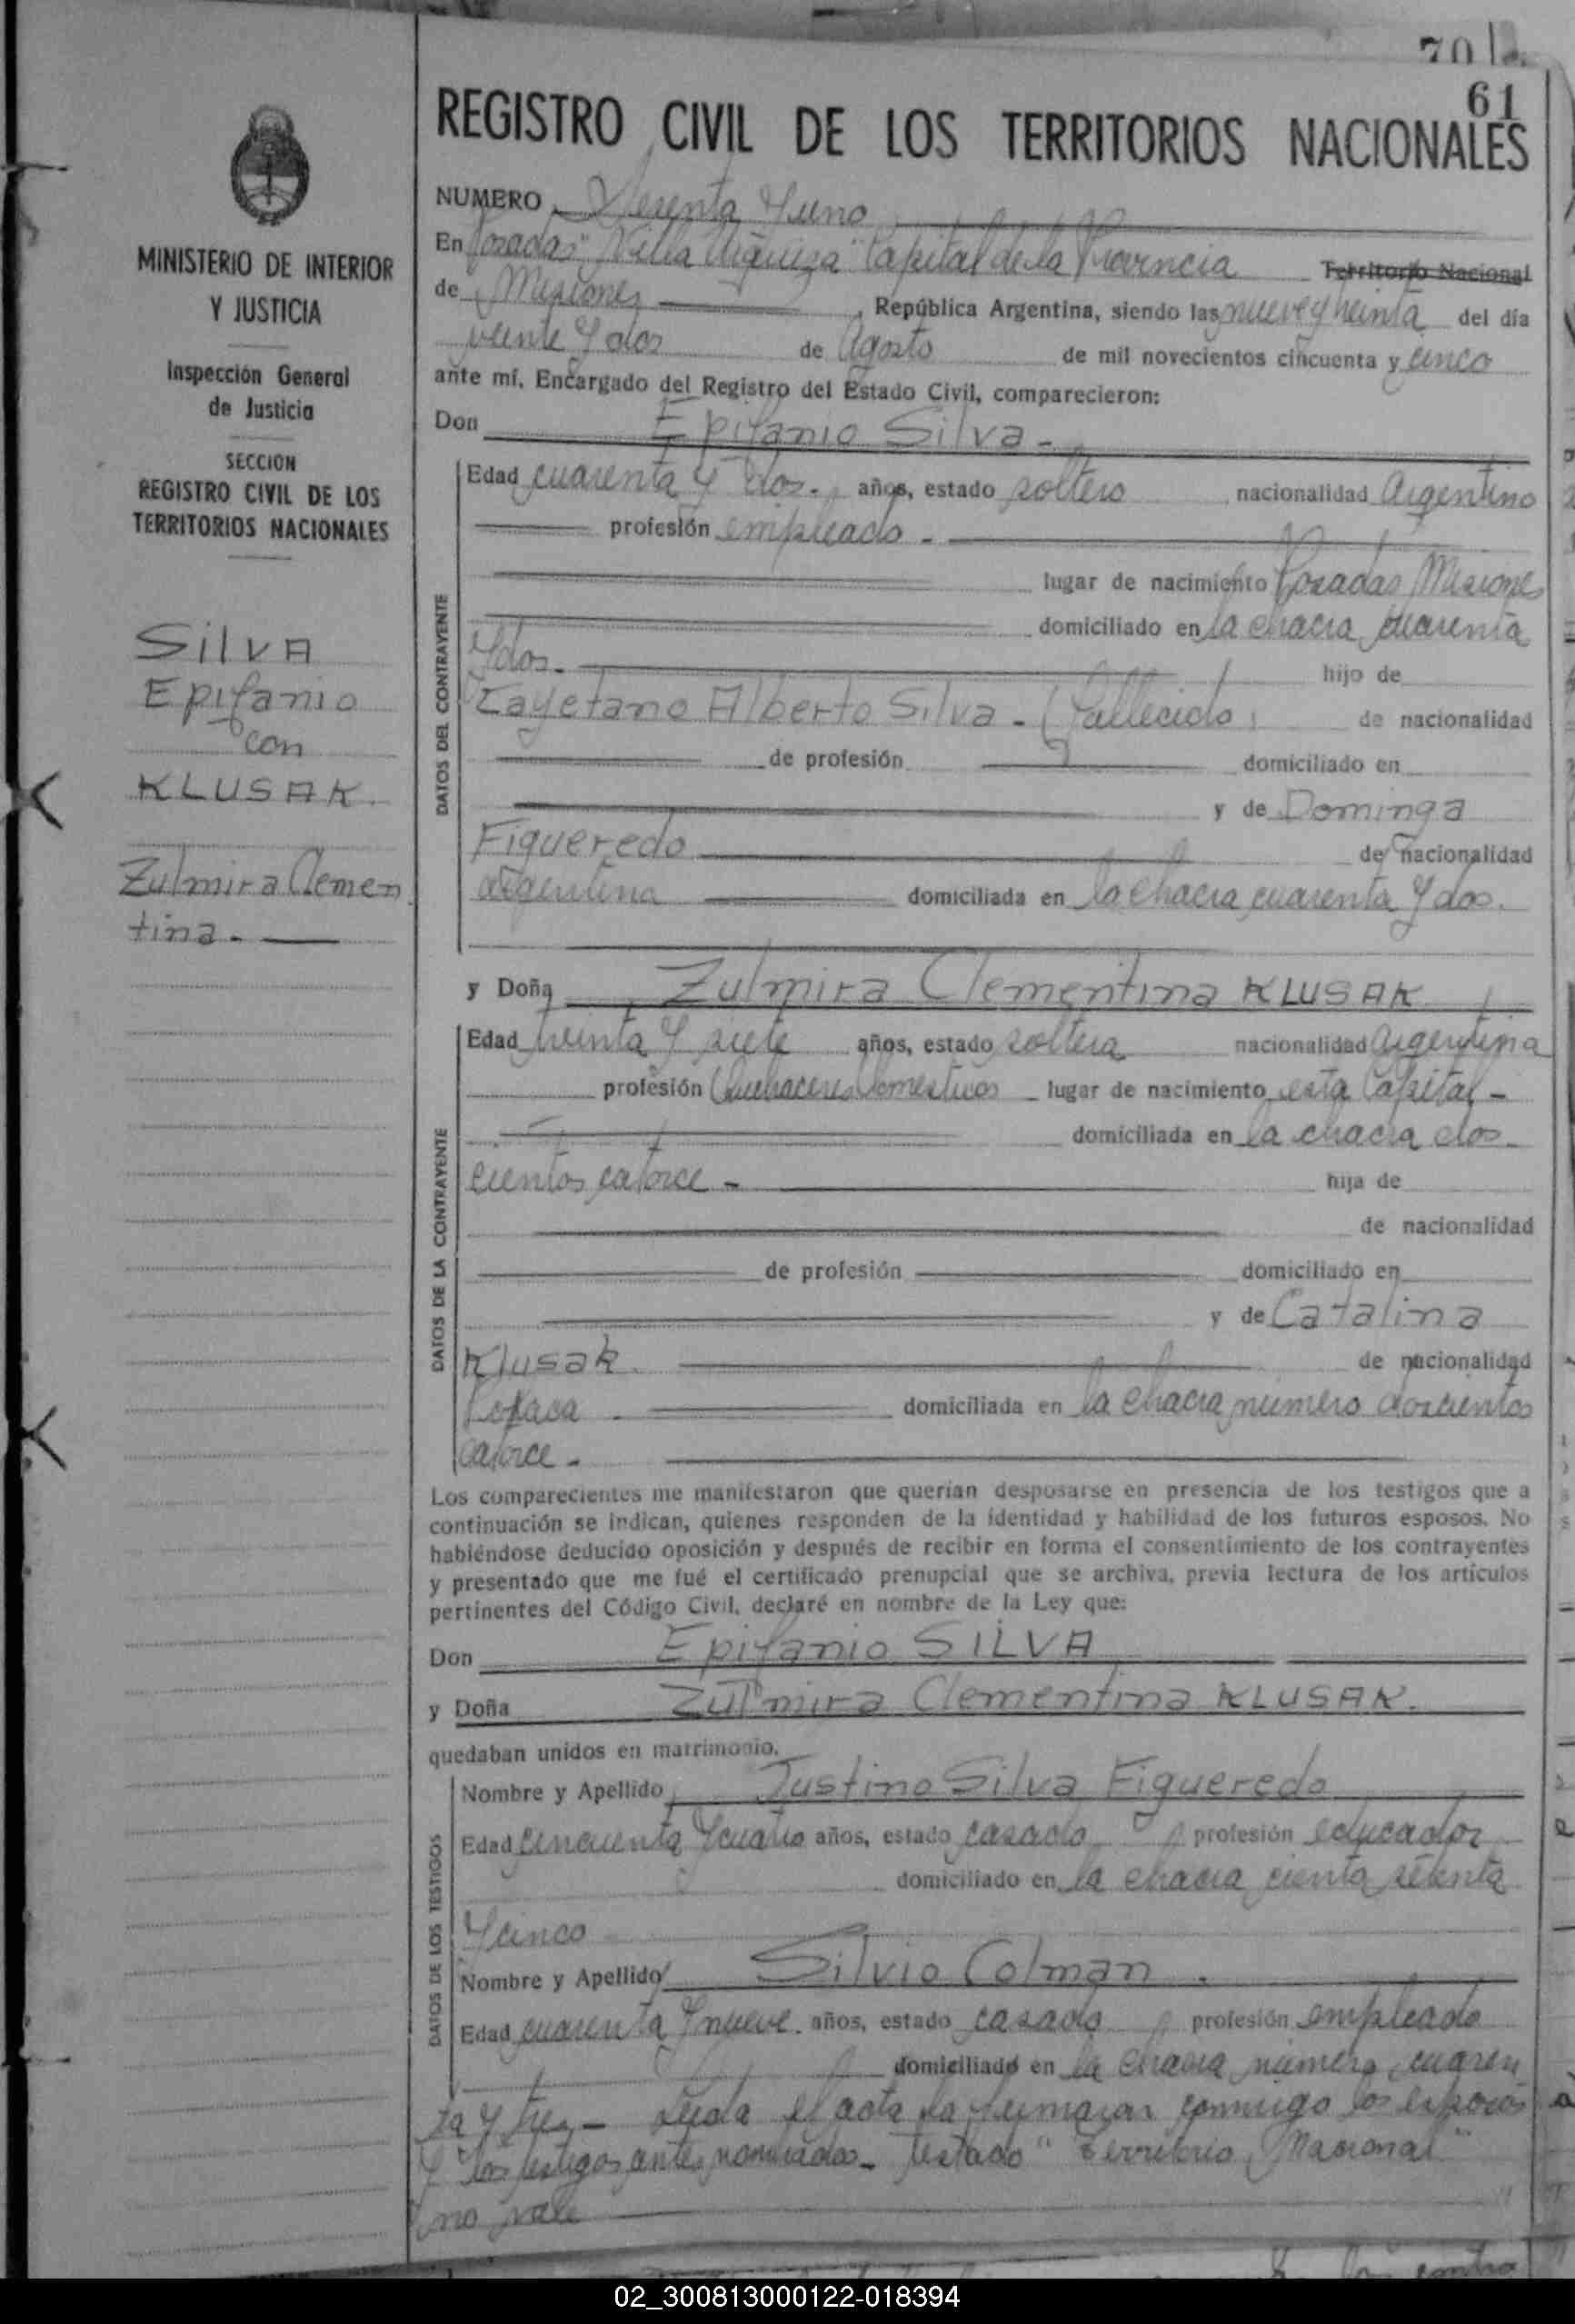 61
REGISTRO CIVIL DE LOS TERRITORIOS NACIONALES
MINISTERIO DE INTERIOR
Y JUSTICIA
Inspección General
de Justicia
SECCION
REGISTRO CIVIL DE LOS
TERRITORIOS NACIONALES
SILVA
Epifanio
con
KLUSAK.
Zulmira Clemen
tina.-
NUMERO Sesenta y uno
En Posadas "Villa Urquiza" Capital de la Provincia Territorio Nacional
de Misiones, República Argentina, siendo las nueve y treinta del día
veinte y dos de Agosto de mil novecientos cincuenta y cinco
ante mí, Encargado del Registro del Estado Civil, comparecieron:
Don Epifanio Silva-
DATOS DEL CONTRAYENTE
Edad cuarenta y dos.- años, estado soltero nacionalidad Argentino
profesión empleado-
lugar de nacimiento Posadas Misiones
domiciliado en la chacra cuarenta
y dos.- hijo de
Cayetano Alberto Silva-(fallecido) de nacionalidad
de profesión domiciliado en
y de Dominga
Figueredo de nacionalidad
argentina domiciliada en la chacra cuarenta y dos.
y Doña Zulmira Clementina KLUSAK
DATOS DE LA CONTRAYENTE
Edad treinta y siete años, estado soltera nacionalidad argentina
profesión Quehaceres Domesticos lugar de nacimiento esta Capital-
domiciliada en la chacra dos
cientos catorce- hija de
de nacionalidad
de profesión domiciliado en
y de Catalina
Klusak. de nacionalidad
Polaca domiciliada en la chacra número doscientos
catorce-
Los comparecientes me manifestaron que querían desposarse en presencia de los testigos que a
continuación se indican, quienes responden de la identidad y habilidad de los futuros esposos. No
habiéndose deducido oposición y después de recibir en forma el consentimiento de los contrayentes
y presentado que me fué el certificado prenupcial que se archiva, previa lectura de los artículos
pertinentes del Código Civil, declaré en nombre de la Ley que:
Don Epifanio SILVA
y Doña Zulmira Clementina KLUSAK.
quedaban unidos en matrimonio.
DATOS DE LOS TESTIGOS
Nombre y Apellido Justino Silva Figueredo
Edad cincuenta y cuatro años, estado casado profesión educador
domiciliado en la chacra ciento setenta
y cinco
Nombre y Apellido Silvio Colman.
Edad cuarenta y nueve. años, estado casado profesión empleado
domiciliado en la chacra número cuaren
ta y tres- Leida el acta la firmaron conmigo los esposos
y los testigos antes nombrados- Testado "Territorio Nacional"
no vale
02_300813000122-018394